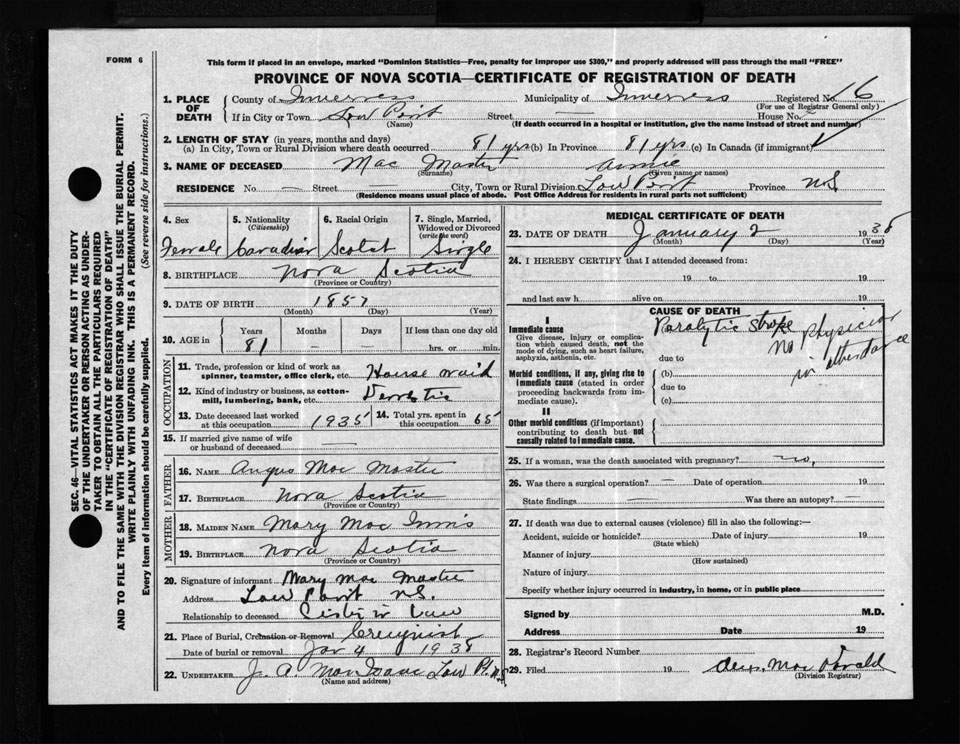 FORM 6
This form if placed in an envelope, marked "Dominion Statistics—Free, penalty for improper use $300," and properly addressed will pass through the mail "FREE"
PROVINCE OF NOVA SCOTIA—CERTIFICATE OF REGISTRATION OF DEATH
SEC. 46—VITAL STATISTICS ACT MAKES IT THE DUTY
OF THE UNDERTAKER OR PERSON ACTING AS UNDER-
TAKER TO OBTAIN ALL THE PARTICULARS REQUIRED
IN THE "CERTIFICATE OF REGISTRATION OF DEATH"
AND TO FILE THE SAME WITH THE DIVISION REGISTRAR WHO SHALL ISSUE THE BURIAL PERMIT.
WRITE PLAINLY WITH UNFADING INK. THIS IS A PERMANENT RECORD.
Every item of information should be carefully supplied. (See reverse side for instructions.)
1. PLACE OF DEATH County of Inverness Municipality of Inverness Registered No. 16
(For use of Registrar General only)
If in City or Town Low Point Street — House No.
(Name) (If death occurred in a hospital or institution, give the name instead of street and number)
2. LENGTH OF STAY (in years, months and days)
(a) In City, Town or Rural Division where death occurred 81 yrs (b) In Province 81 yrs (c) In Canada (if immigrant)
3. NAME OF DECEASED Mac Master Annie
(Surname) (Given name or names)
RESIDENCE No. — Street — City, Town or Rural Division Low Point Province N.S.
(Residence means usual place of abode. Post Office Address for residents in rural parts not sufficient)
4. Sex Female
5. Nationality (Citizenship) Canadian
6. Racial Origin Scotch
7. Single, Married, Widowed or Divorced (write the word) Single
8. BIRTHPLACE Nova Scotia
(Province or Country)
9. DATE OF BIRTH 1857
(Month) (Day) (Year)
10. AGE in Years 81 Months — Days — If less than one day old hrs. or min.
OCCUPATION
11. Trade, profession or kind of work as spinner, teamster, office clerk, etc. House maid
12. Kind of industry or business, as cotton-mill, lumbering, bank, etc.
13. Date deceased last worked at this occupation 1935
14. Total yrs. spent in this occupation 65
15. If married give name of wife or husband of deceased —
FATHER
16. NAME Angus Mac Master
17. BIRTHPLACE Nova Scotia
(Province or Country)
MOTHER
18. MAIDEN NAME Mary Mac Innis
19. BIRTHPLACE Nova Scotia
(Province or Country)
20. Signature of informant Mary Mac Master
Address Low Point N.S.
Relationship to deceased Sister in law
21. Place of Burial, Cremation or Removal Creignish
Date of burial or removal Jan 4 1938
22. UNDERTAKER J. A. Low Pt. N.S.
(Name and address)
MEDICAL CERTIFICATE OF DEATH
23. DATE OF DEATH January 2 1938
(Month) (Day) (Year)
24. I HEREBY CERTIFY that I attended deceased from:
19 to 19
and last saw h alive on 19
CAUSE OF DEATH
I
Immediate cause Paralytic stroke
Give disease, injury or complication which caused death, not the mode of dying, such as heart failure, asphyxia, asthenia, etc.
No physician in attendance
due to
Morbid conditions, if any, giving rise to immediate cause (stated in order proceeding backwards from immediate cause).
(b)
due to
(c)
II
Other morbid conditions (if important) contributing to death but not causally related to immediate cause.
25. If a woman, was the death associated with pregnancy? no.
26. Was there a surgical operation? — Date of operation 19
State findings Was there an autopsy? —
27. If death was due to external causes (violence) fill in also the following:—
Accident, suicide or homicide? Date of injury 19
(State which)
Manner of injury
(How sustained)
Nature of injury
Specify whether injury occurred in industry, in home, or in public place
Signed by M.D.
Address Date 19
28. Registrar's Record Number
29. Filed 19
(Division Registrar)